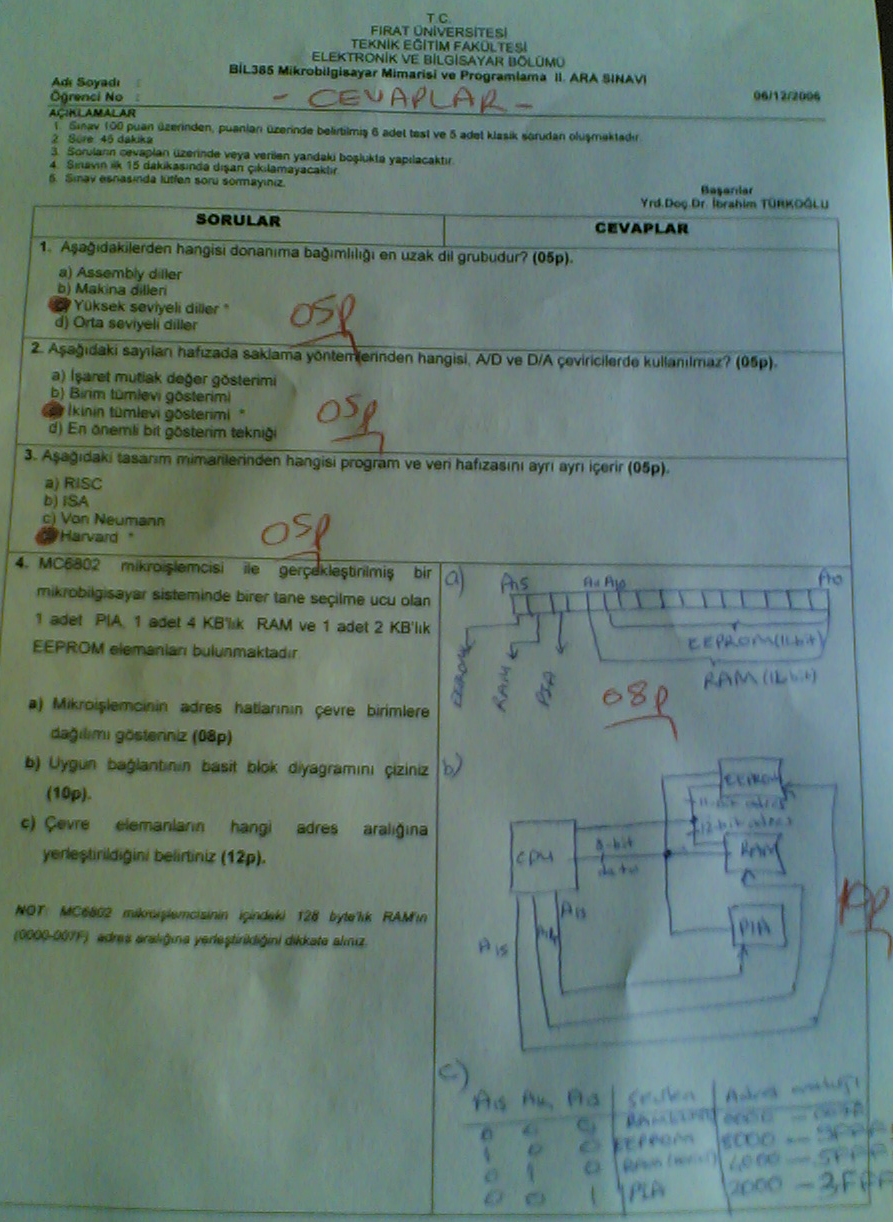 T.C.
FIRAT ÜNİVERSİTESİ
TEKNİK EĞİTİM FAKÜLTESİ
ELEKTRONİK VE BİLGİSAYAR BÖLÜMÜ
BİL385 Mikrobilgisayar Mimarisi ve Programlama II. ARA SINAVI
Adı Soyadı :
Öğrenci No :
- CEVAPLAR -
06/12/2006
AÇIKLAMALAR
1. Sınav 100 puan üzerinden, puanları üzerinde belirtilmiş 6 adet test ve 5 adet klasik sorudan oluşmaktadır.
2. Süre: 45 dakika
3. Soruların cevapları üzerinde veya verilen yandaki boşlukta yapılacaktır.
4. Sınavın ilk 15 dakikasında dışarı çıkılamayacaktır.
5. Sınav esnasında lütfen soru sormayınız.
Başarılar
Yrd.Doç.Dr. İbrahim TÜRKOĞLU
SORULAR
CEVAPLAR
1. Aşağıdakilerden hangisi donanıma bağımlılığı en uzak dil grubudur? (05p).
a) Assembly diller
b) Makina dilleri
Yüksek seviyeli diller *
d) Orta seviyeli diller
05p
2. Aşağıdaki sayıları hafızada saklama yöntemlerinden hangisi, A/D ve D/A çeviricilerde kullanılmaz? (05p).
a) İşaret mutlak değer gösterimi
b) Birim tümlevi gösterimi
İkinin tümlevi gösterimi *
d) En önemli bit gösterim tekniği
05p
3. Aşağıdaki tasarım mimarilerinden hangisi program ve veri hafızasını ayrı ayrı içerir (05p).
a) RISC
b) ISA
c) Von Neumann
Harvard *
05p
4. MC6802 mikroişlemcisi ile gerçekleştirilmiş bir
mikrobilgisayar sisteminde birer tane seçilme ucu olan
1 adet PIA, 1 adet 4 KB'lık RAM ve 1 adet 2 KB'lık
EEPROM elemanları bulunmaktadır.
a) Mikroişlemcinin adres hatlarının çevre birimlere
dağılımı gösteriniz (08p)
b) Uygun bağlantının basit blok diyagramını çiziniz
(10p).
c) Çevre elemanların hangi adres aralığına
yerleştirildiğini belirtiniz (12p).
NOT: MC6802 mikroişlemcisinin içindeki 128 byte'lık RAM'ın
(0000-007F) adres aralığına yerleştirildiğini dikkate alınız.
a)
A15 A11 A10 A0
EEPROM (11 bit)
RAM
PIA
08p
b)
EEPROM
11-bit adres
12-bit adres
CPU
8-bit
data
RAM
PIA
A15
A14
A13
10p
c)
A15 A14 A13
0 0 0
1 0 0 EEPROM
0 1 0
0 0 1 PIA 2000 - 3FFF